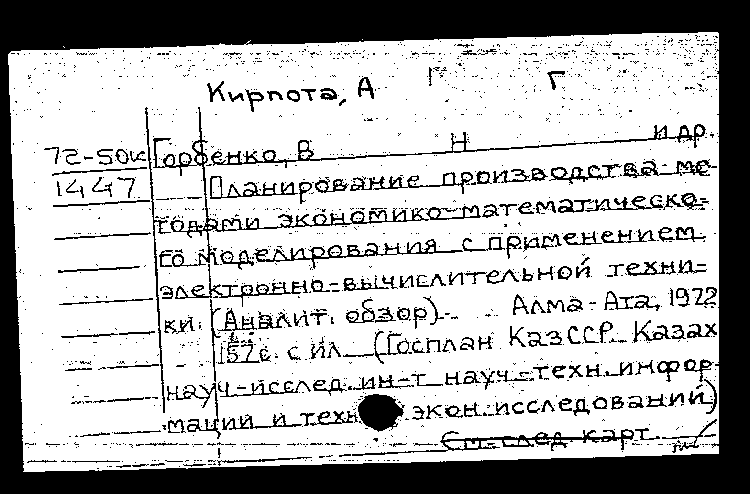 Кирпота, А Г
72-50к Горбенко, В Н и др.
1447 Планирование производства ме-
тодами экономико-математическо-
го моделирования с применением
электронно-вычислительной техни-
ки. (Аналит. обзор). Алма-Ата, 1972
157с. с ил. (Госплан КазССР. Казах
науч-исслед. ин-т науч-техн. инфор-
мации и техн экон. исследований)
См. след карт.